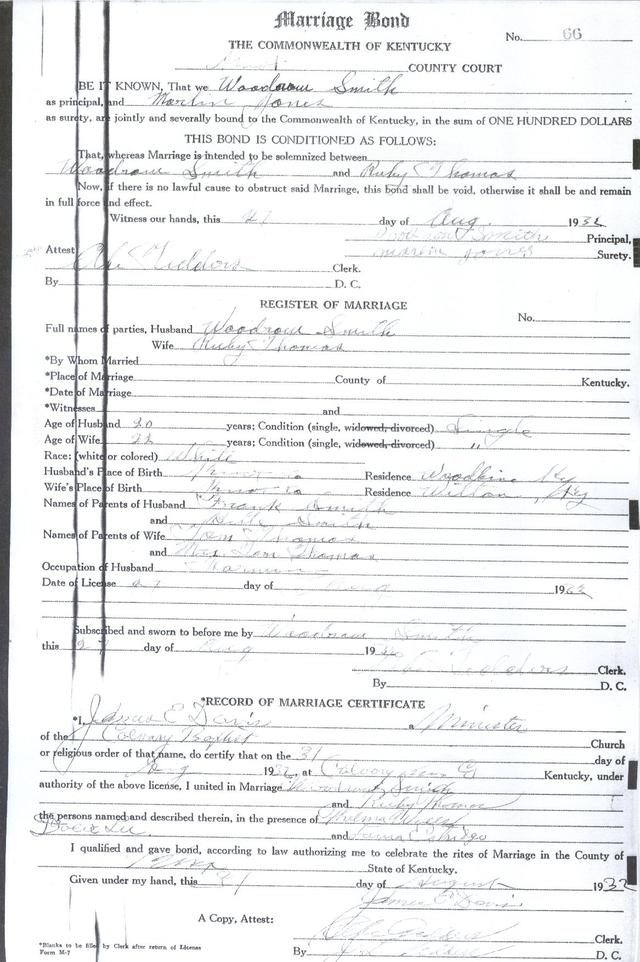 Marriage Bond
No. 66
THE COMMONWEALTH OF KENTUCKY
COUNTY COURT
BE IT KNOWN, That we Woodrow Smith
as principal, and Marlin Jones
as surety, are jointly and severally bound to the Commonwealth of Kentucky, in the sum of ONE HUNDRED DOLLARS
THIS BOND IS CONDITIONED AS FOLLOWS:
That, whereas Marriage is intended to be solemnized between
Woodrow Smith and Ruby Thomas
Now, if there is no lawful cause to obstruct said Marriage, this bond shall be void, otherwise it shall be and remain
in full force and effect.
Witness our hands, this 27 day of Aug. 1932
Woodrow Smith Principal,
Marlin Jones Surety.
Attest
Clerk.
By D. C.
REGISTER OF MARRIAGE
No.
Full names of parties, Husband Woodrow Smith
Wife Ruby Thomas
*By Whom Married
*Place of Marriage County of Kentucky.
*Date of Marriage
*Witnesses and
Age of Husband 20 years; Condition (single, widowed, divorced) Single
Age of Wife 22 years; Condition (single, widowed, divorced) "
Race: (white or colored) White
Husband's Place of Birth Knox Co Residence Woodbine Ky
Wife's Place of Birth Knox Co Residence Wilton, Ky
Names of Parents of Husband Frank Smith
and Smith
Names of Parents of Wife Tom Thomas
and Mrs. Tom Thomas
Occupation of Husband Farming
Date of License 27 day of Aug 1932
Subscribed and sworn to before me by Woodrow Smith
this 27 day of Aug 1932
Clerk.
By D. C.
*RECORD OF MARRIAGE CERTIFICATE
*I, James E Davis a Minister
of the Calvary Baptist Church
or religious order of that name, do certify that on the 31 day of
Aug 1932, at Calvary Kentucky, under
authority of the above license, I united in Marriage Woodrow Smith
and Ruby Thomas
the persons named and described therein, in the presence of Thelma
and
I qualified and gave bond, according to law authorizing me to celebrate the rites of Marriage in the County of
Knox State of Kentucky.
Given under my hand, this 31 day of August 1932
James E Davis
A Copy, Attest:
Clerk.
By D. C.
*Blanks to be filled by Clerk after return of License
Form M-7